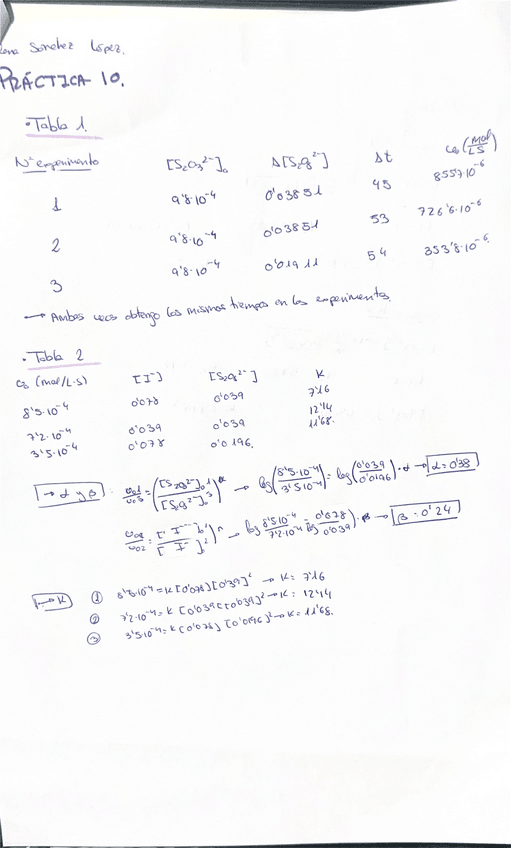 Sánchez López.
PRÁCTICA 10.
• Tabla 1.
Nº experimento [S₂O₃²⁻]₀ Δ[S₂O₈²⁻] Δt v₀ (mol/LS)
1 9'8·10⁻⁴ 0'03851 45 855'7·10⁻⁶
2 9'8·10⁻⁴ 0'03851 53 726'6·10⁻⁶
3 9'8·10⁻⁴ 0'01911 54 353'8·10⁻⁶
→ Ambas veces obtengo los mismos tiempos en los experimentos.
• Tabla 2
v₀ (mol/L·s) [I⁻] [S₂O₈²⁻] K
8'5·10⁻⁴ 0'078 0'039 7'16
7'2·10⁻⁴ 0'039 0'039 12'14
3'5·10⁻⁴ 0'078 0'0196. 11'68.
→ α y β v₀1/v₀3 = ([S₂O₈²⁻]₀¹/[S₂O₈²⁻]₀³)^α → log(8'5·10⁻⁴/3'5·10⁻⁴) = log(0'039/0'0196)·α → α = 0'38
v₀1/v₀2 = ([I⁻]₀¹/[I⁻]₀²)ⁿ → log 8'5·10⁻⁴/7'2·10⁻⁴ = log(0'078/0'039)·β → β = 0'24
→ K ① 8'5·10⁻⁴ = K [0'078][0'39]² → K = 7'16
② 7'2·10⁻⁴ = K [0'039][0'039]² → K = 12'14
③ 3'5·10⁻⁴ = K [0'078] [0'0196]² → K = 11'68.